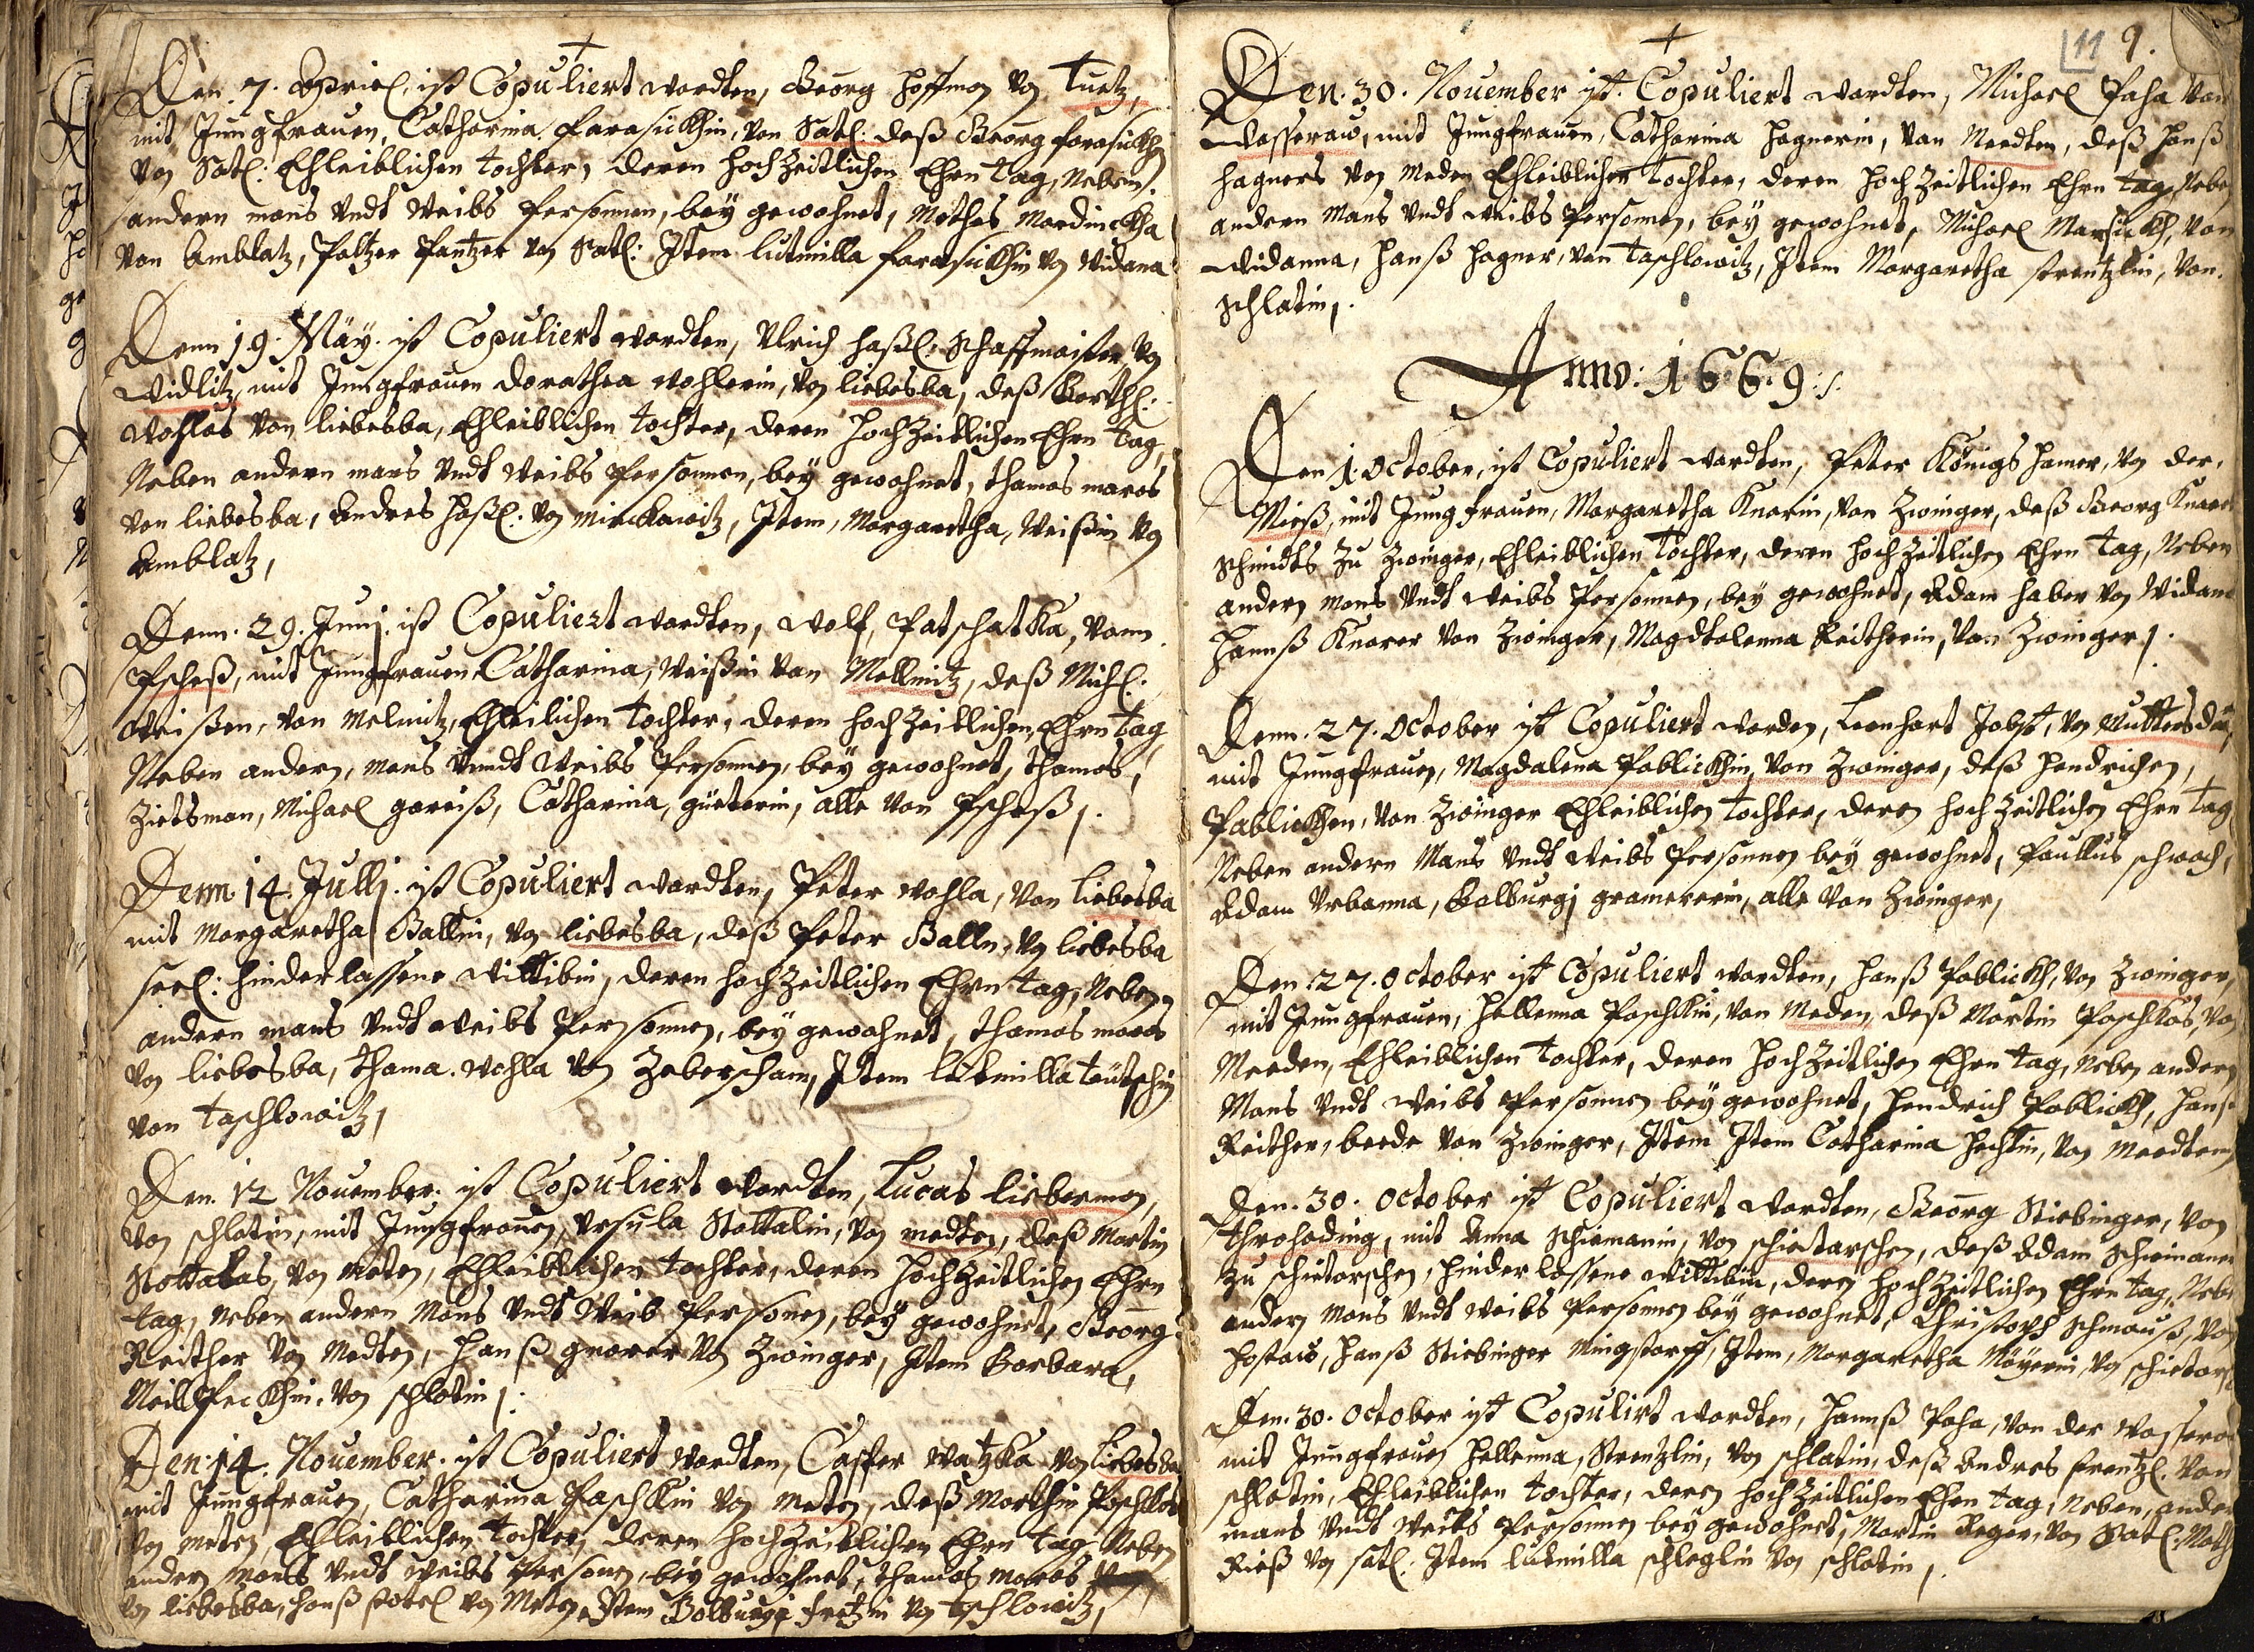 Den. 7. Apriel. ist Copuliert wordten, Georg Hoffmon Vo Tuetz,
mit Jungfrauen, Catharina Farasickhin, von Satl: deß Georg Farasickhen
Von Satl: Ehleiblichen tochter, deren Hochzeitlichen Ehrn tag, Neben.
andern mans Vndt Weibs Personnen, bey gewohnet, Mathes Mardinckha
Von Amblatz, Paltzer Pantzer Von Satl: Item lutmilla farasickhin Vo Widana
Denn 19. Maÿ. ist Copuliert wordten, Vlrich Haßl: Schaffmaister Vo
Widlitz, mit Jungfrauen Dorathea Wohlerin, Vo liebesba, deß Barthl:
Wohlas Von liebesba, Ehleiblichen tochter, deren Hochzeitlichen Ehrn tag,
Neben andern mans Vndt Weibs Personnen, bey gewohnet, thamas maras
von liebesba, Andres Haßl: Vo Mirckawitz, Item, Margaretha, Weißin Vo
Amblatz,
Denn. 29. Junj. ist Copuliert wordten, Wolf, Patschatka, Vonn
Pscheß, mit Jungfrauen Catharina, Weißin Von Mellnitz, deß Michl:
Weißen, Von Melnitz, Ehleilichen tochter, deren Hochzeitlichen Ehrn tag
Neben andern, mans Vnndt Weibs Personnen, bey gewohnet, thamas,
Zietsman, Michael gareiß, Catharina, güeterin, alle Von Pscheß,.
Denn 14. Jullj. ist Copuliert wordten, Peter Wohla, Von Liebesba
mit Margaretha Ballin, Vo liebesba, deß Peter Balln, Vo liebesba
seel: hinderlassene Wittibin, deren Hochzeitlichen Ehrn tag, Neben,
andern mans Vndt Weibs Personnen, bey gewohnet, thamas maras
Vo liebesba, thama. Wohla Vo Zeberscham, Item lutmilla teütschin
Von taschlowitz,
Den. 12 Nouember. ist Copuliert wordten, Lucas lieberman,
Von schlatin, mit Jungfrauen, Vrsula Nottalin, Vo medten, deß Martin
Nottalas, Vo Meten, Ehleiblichen tochter, deren Hochzeitlichen Ehrn
tag, neben andern Mans Vndt Weib Personen, bey gewohnet, Georg
Reither Vo Medten, Hanß gnarer Vo Zwinger, Item Barbara,
Mailpeckhin, Vo schlatin,.
Den. 14. Nouember. ist Copuliert wordten, Casper Watzka Vo Liebesba
mit Jungfrauen, Catharina Paschkin Vo Meten, deß Marthin Paschkas
Vo meten, Ehleiblichen tochter, deren Hochzeitlichen Ehrn tag, Neben
andern Mans Vndt Weibs Personn, bey gewohnet, thamas maras
Vo liebesba, Hanß Potel Vo Meten, Item Bolburgi Fritzin Vo taschlowitz,
11 9.
Den. 30. Nouember ist. Copuliert wordten, Michael Paha Von
Wasseraw, mit Jungfrauen, Catharina Hagnerin, Von Meedten, deß Hanß
Hagners Von Meden Ehleiblichen tochter, deren Hochzeitlichen Ehrn tag, Neben
andern Mans Vndt Weibs Personnen, bey gewohnet, Michael Marsickh, Von
Widanna, Hanß Hagner, Von taschlowitz, Item Margaretha Strentzlin, Von.
Schlatin,.
Anno: 1.6.6.9:/:
Den 1. October, ist Copuliert wordten, Peter Königs Hamer, Vo der.
Mieß, mit Jungfrauen, Margaretha Knarin, Von Zwinger, deß Georg Knarer
schmidts Zu Zwinger, Ehleiblichen Tochter, deren Hochzeitlichen Ehrn tag, Neben
andern mans Vndt Weibs Personnen, bey gewohnet, Adam Haber Vo Widana
Hannß Knarer Von Zwinger, Magdtalenna Reitherin, Von Zwinger,.
Denn. 27. October ist Copuliert worden, Leonhart Jobst, Vo Muttersdorf,
mit Jungfrauen, Magdalena Pablickhin, Von Zwinger, deß Hendrichen,
Pablickhen, Von Zwinger Ehleiblichen tochter, deren Hochzeitlichen Ehrn tag
Neben andern Mans Vndt Weibs Personnen bey gewohnet, Paullus schwach,
Adam Vrbanna, Balburgj gramererin, alle Von Zwinger,
Den. 27. October ist Copuliert wordten, Hanß Pablickh, Von Zwinger,
mit Jungfrauen, Hellenna Paschkin, Von Meden, deß Martin Paschkas, Vo
Meeden, Ehleiblichen tochter, deren Hochzeitlichen Ehrn tag, neben andern
Mans Vndt Weibs Personnen bey gewohnet, Hendrich Pablickh, Hanß
Reither, beede Von Zwinger, Item Item Catharina Hechtin, Vo Meedten,
Den. 30. October ist Copuliert wordten, Georg Stiebinger, Von
throhading, mit Anna Schiemanin, Von schietarschen, deß Adam Schimaner
zu schietarschen, hinderlassene Wittibin, deren Hochzeitlichen Ehrn tag, Neben
andern mans Vndt Weibs Personnen bey gewohnet, Christoph Schmauß, Von
Hostaw, Hanß Stiebinger Mingstorff, Item, Margaretha Mäyerin, Vo schietars
Den. 30. October ist Copulirt wordten, Hannß Paha, Von der Wasseraw
mit Jungfrauen Hellenna, Strenzlin, Vo schlatin, deß Andres strentzl. Von
schlatin, Ehleiblichen tochter, deren Hochzeitlichen Ehrn tag, Neben, ander
mans Vndt Weibs Personnen bey gewohnet, Martin Reger, Von Satl: Math
Rieß Vo satl: Item lutmilla schleglin Vo schlatin,.